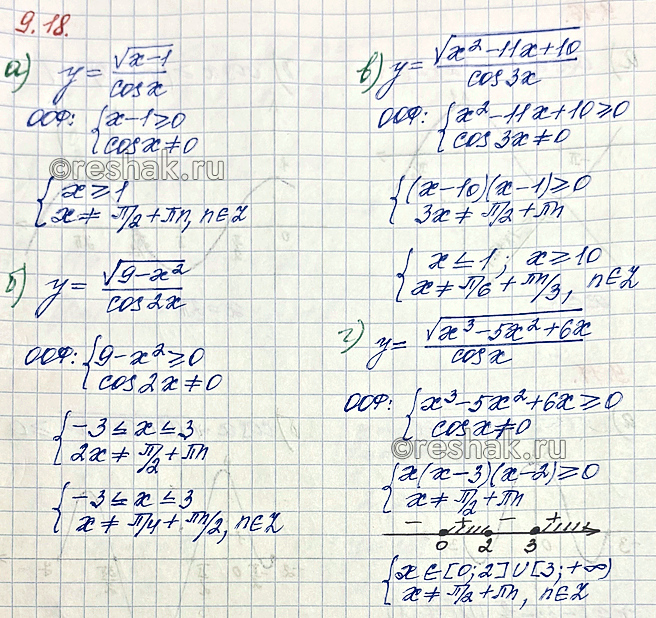 9.18.
а) y = √(x-1) / cos x
ООФ: { x-1 ≥ 0
cos x ≠ 0
{ x ≥ 1
x ≠ π/2 + πn, n∈Z
©reshak.ru
б) y = √(9-x²) / cos 2x
ООФ: { 9-x² ≥ 0
cos 2x ≠ 0
{ -3 ≤ x ≤ 3
2x ≠ π/2 + πn
{ -3 ≤ x ≤ 3
x ≠ π/4 + πn/2, n∈Z
в) y = √(x²-11x+10) / cos 3x
ООФ: { x²-11x+10 ≥ 0
cos 3x ≠ 0
{ (x-10)(x-1) ≥ 0
3x ≠ π/2 + πn
{ x ≤ 1; x ≥ 10
x ≠ π/6 + πn/3, n∈Z
г) y = √(x³-5x²+6x) / cos x
ООФ: { x³-5x²+6x ≥ 0
cos x ≠ 0
©reshak.ru
{ x(x-3)(x-2) ≥ 0
x ≠ π/2 + πn
- + - +
0 2 3
{ x∈[0;2]∪[3;+∞)
x ≠ π/2 + πn, n∈Z